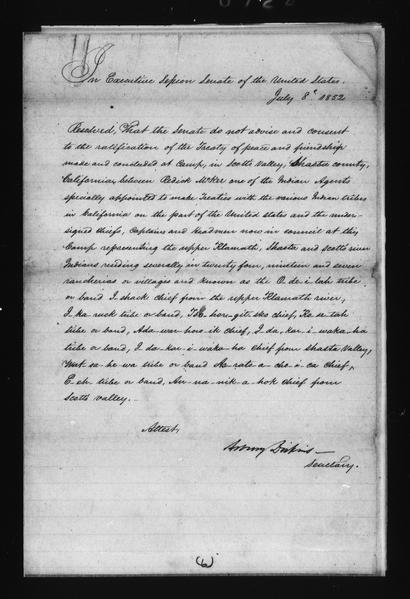 In Executive Session Senate of the United States.
July 8th 1852
Resolved, That the Senate do not advise and consent
to the ratification of the Treaty of peace and friendship
made and concluded at Camp, in Scotts Valley, Shasta county,
California, between Redick McKee one of the Indian Agents
specially appointed to make Treaties with the various Indian tribes
in California on the part of the United States and the under-
signed chiefs, Captains and headmen now in council at this
Camp representing the upper Klamath, Shasta and Scotts river
Indians residing severally in twenty four, nineteen and seven
rancherias or villages and known as the O-de-i-lah tribe
or band I-shack chief from the upper Klamath river,
I-ka-ruck tribe or band, chief, Ko-se-tah
tribe or band, Ada-war-how-ik chief, I-da-kar-i-waka-ha
tribe or band, I-da-kar-i-waka-ha chief from Shasta Valley,
tribe or band chief,
E-eh tribe or band, An-na-nik-a-hok chief from
Scotts valley.
Attest,
Asbury Dickins
Secretary.